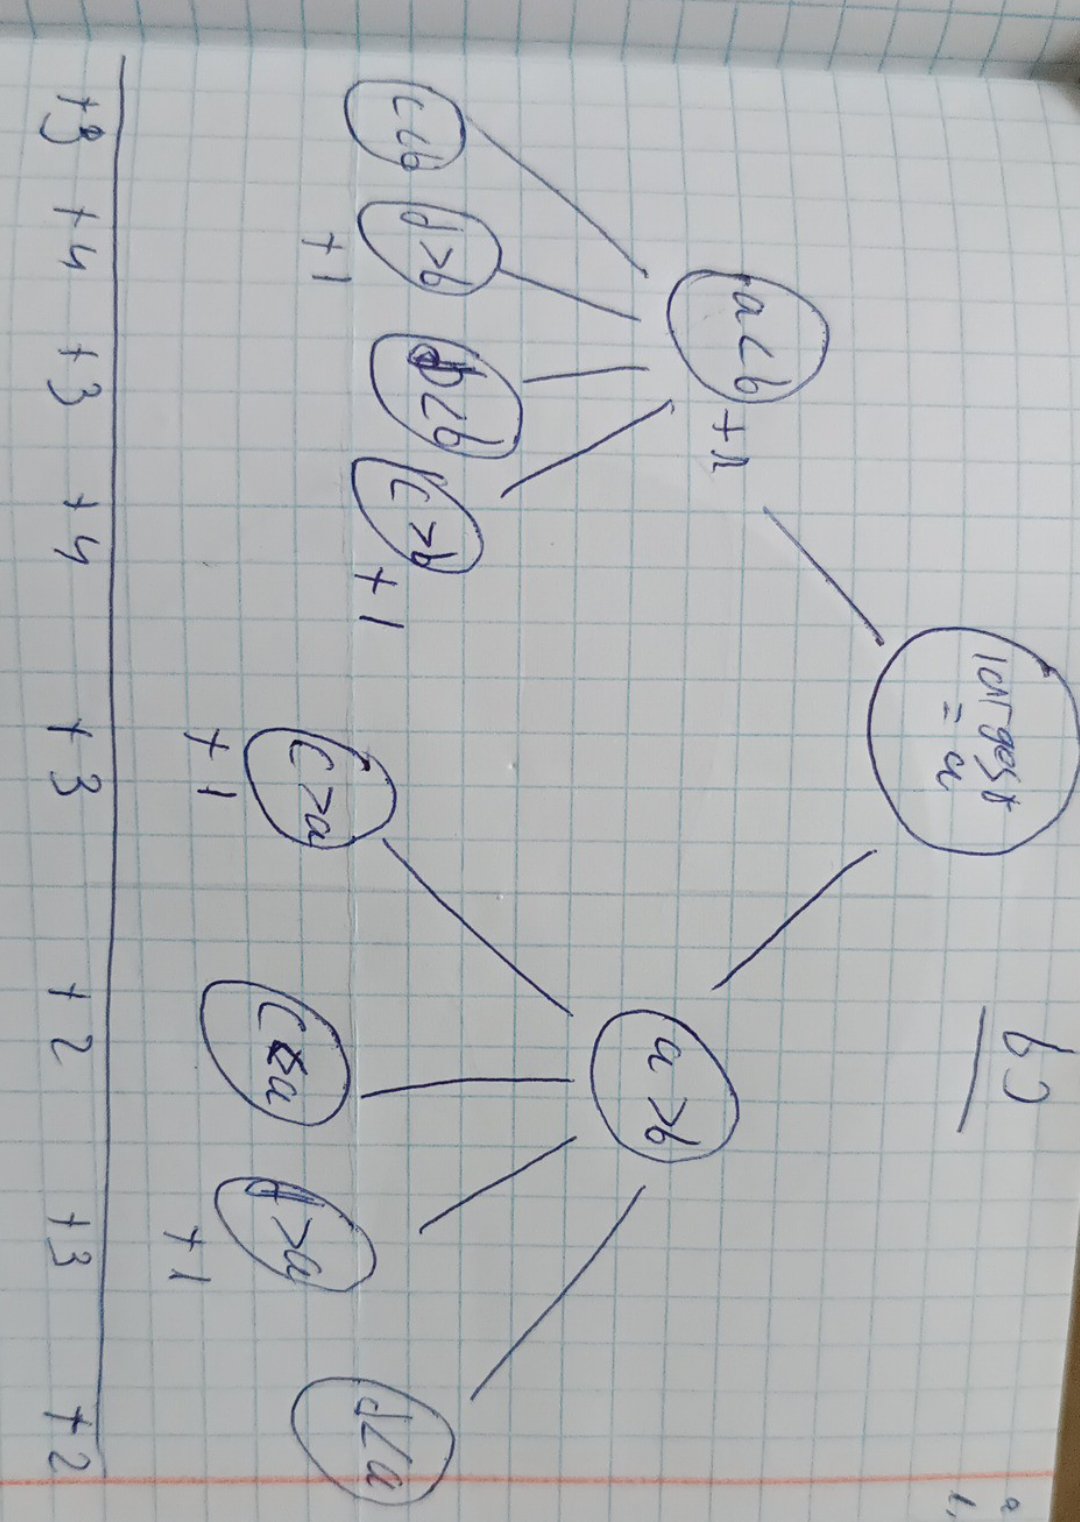 b)
largest
= a
a<b
+1
a>b
c<b
d>b
+1
b<b
c>b
+1
c>a
+1
c<a
d>a
+1
d<a
+3 +4 +3 +4 +3 +2 +3 +2